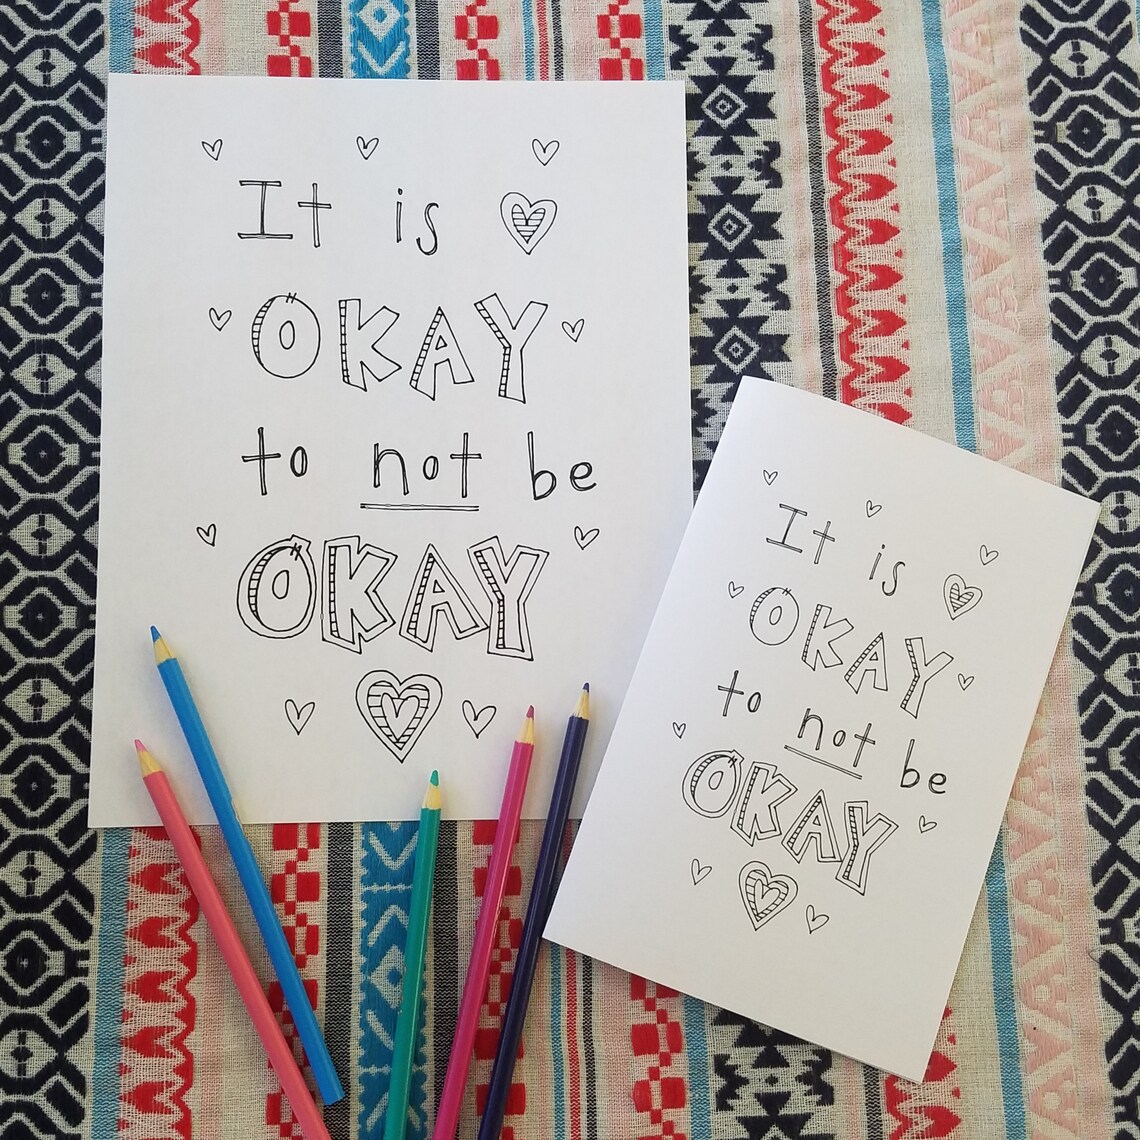 It is
OKAY
to not be
OKAY
It is
OKAY
to not be
OKAY